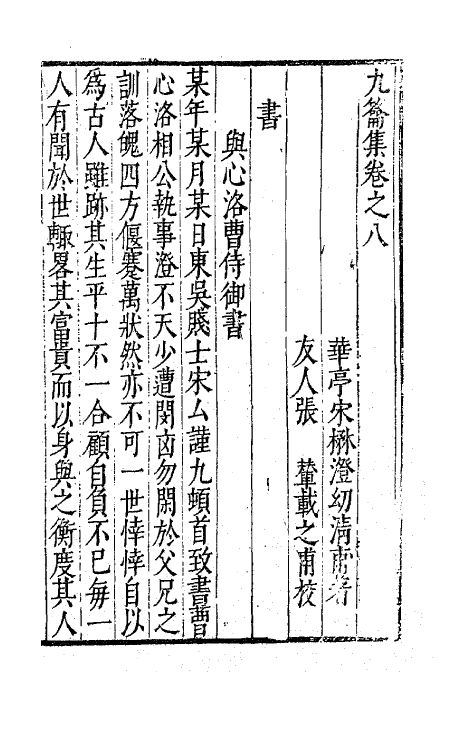 九籥集卷之八
華亭宋楙澄幼清甫著
友人張　輦載之甫校
書
與心洛曹侍御書
某年某月某日東吳賤士宋厶謹九頓首致書曹
心洛相公執事澄不天少遭閔凶勿閑於父兄之
訓落魄四方偃蹇萬狀然亦不可一世悻悻自以
爲古人雖跡其生平十不一合顧自負不已每一
人有聞於世輒畧其富貴而以身與之衡度其人